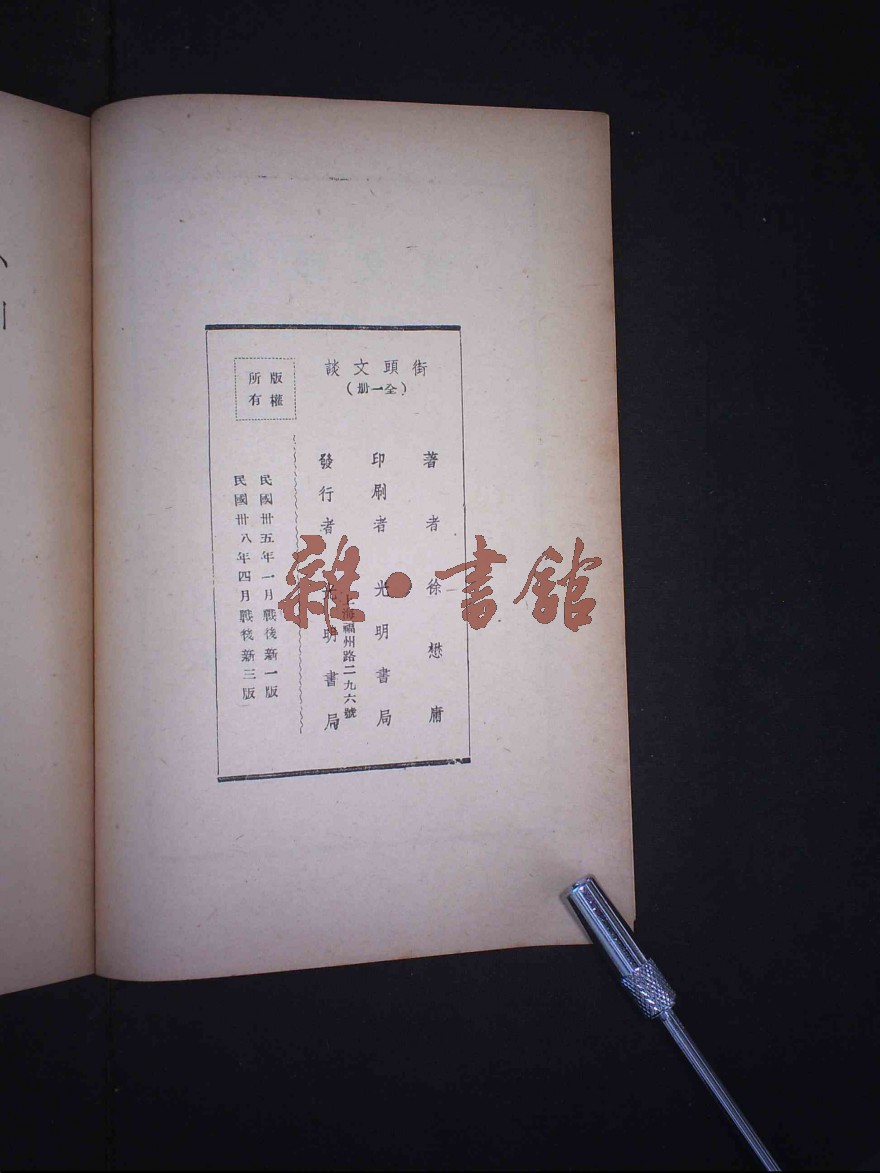 街頭文談
(全一冊)
著者 徐懋庸
印刷者 光明書局
上海福州路二九六號
發行者 光明書局
民國卅五年一月戰後新一版
民國卅八年四月戰後新三版
版權
所有
雜·書館